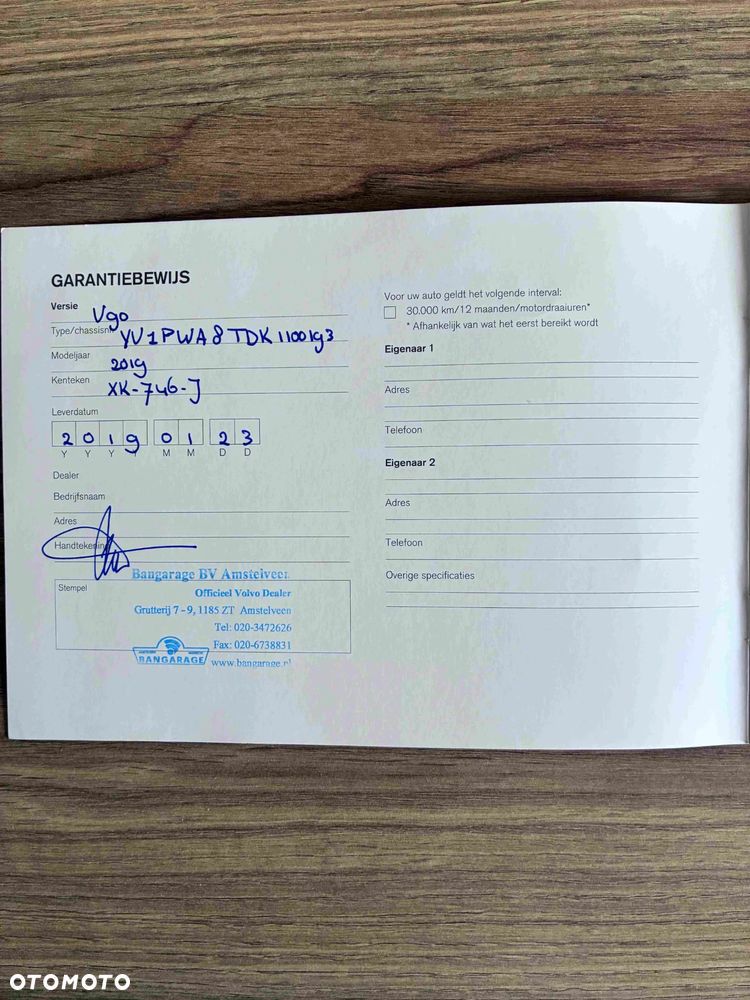 GARANTIEBEWIJS
Versie V90
Type/chassisnr YV1PWA8TDK1100193
Modeljaar 2019
Kenteken XK-746-J
Leverdatum
2019 01 23
Y Y Y Y M M D D
Dealer
Bedrijfsnaam
Adres
Handtekening
Stempel
Bangarage BV Amstelveen
Officieel Volvo Dealer
Grutterij 7 - 9, 1185 ZT Amstelveen
Tel: 020-3472626
Fax: 020-6738831
BANGARAGE www.bangarage.nl
Voor uw auto geldt het volgende interval:
30.000 km/12 maanden/motordraaiuren*
* Afhankelijk van wat het eerst bereikt wordt
Eigenaar 1
Adres
Telefoon
Eigenaar 2
Adres
Telefoon
Overige specificaties
OTOMOTO